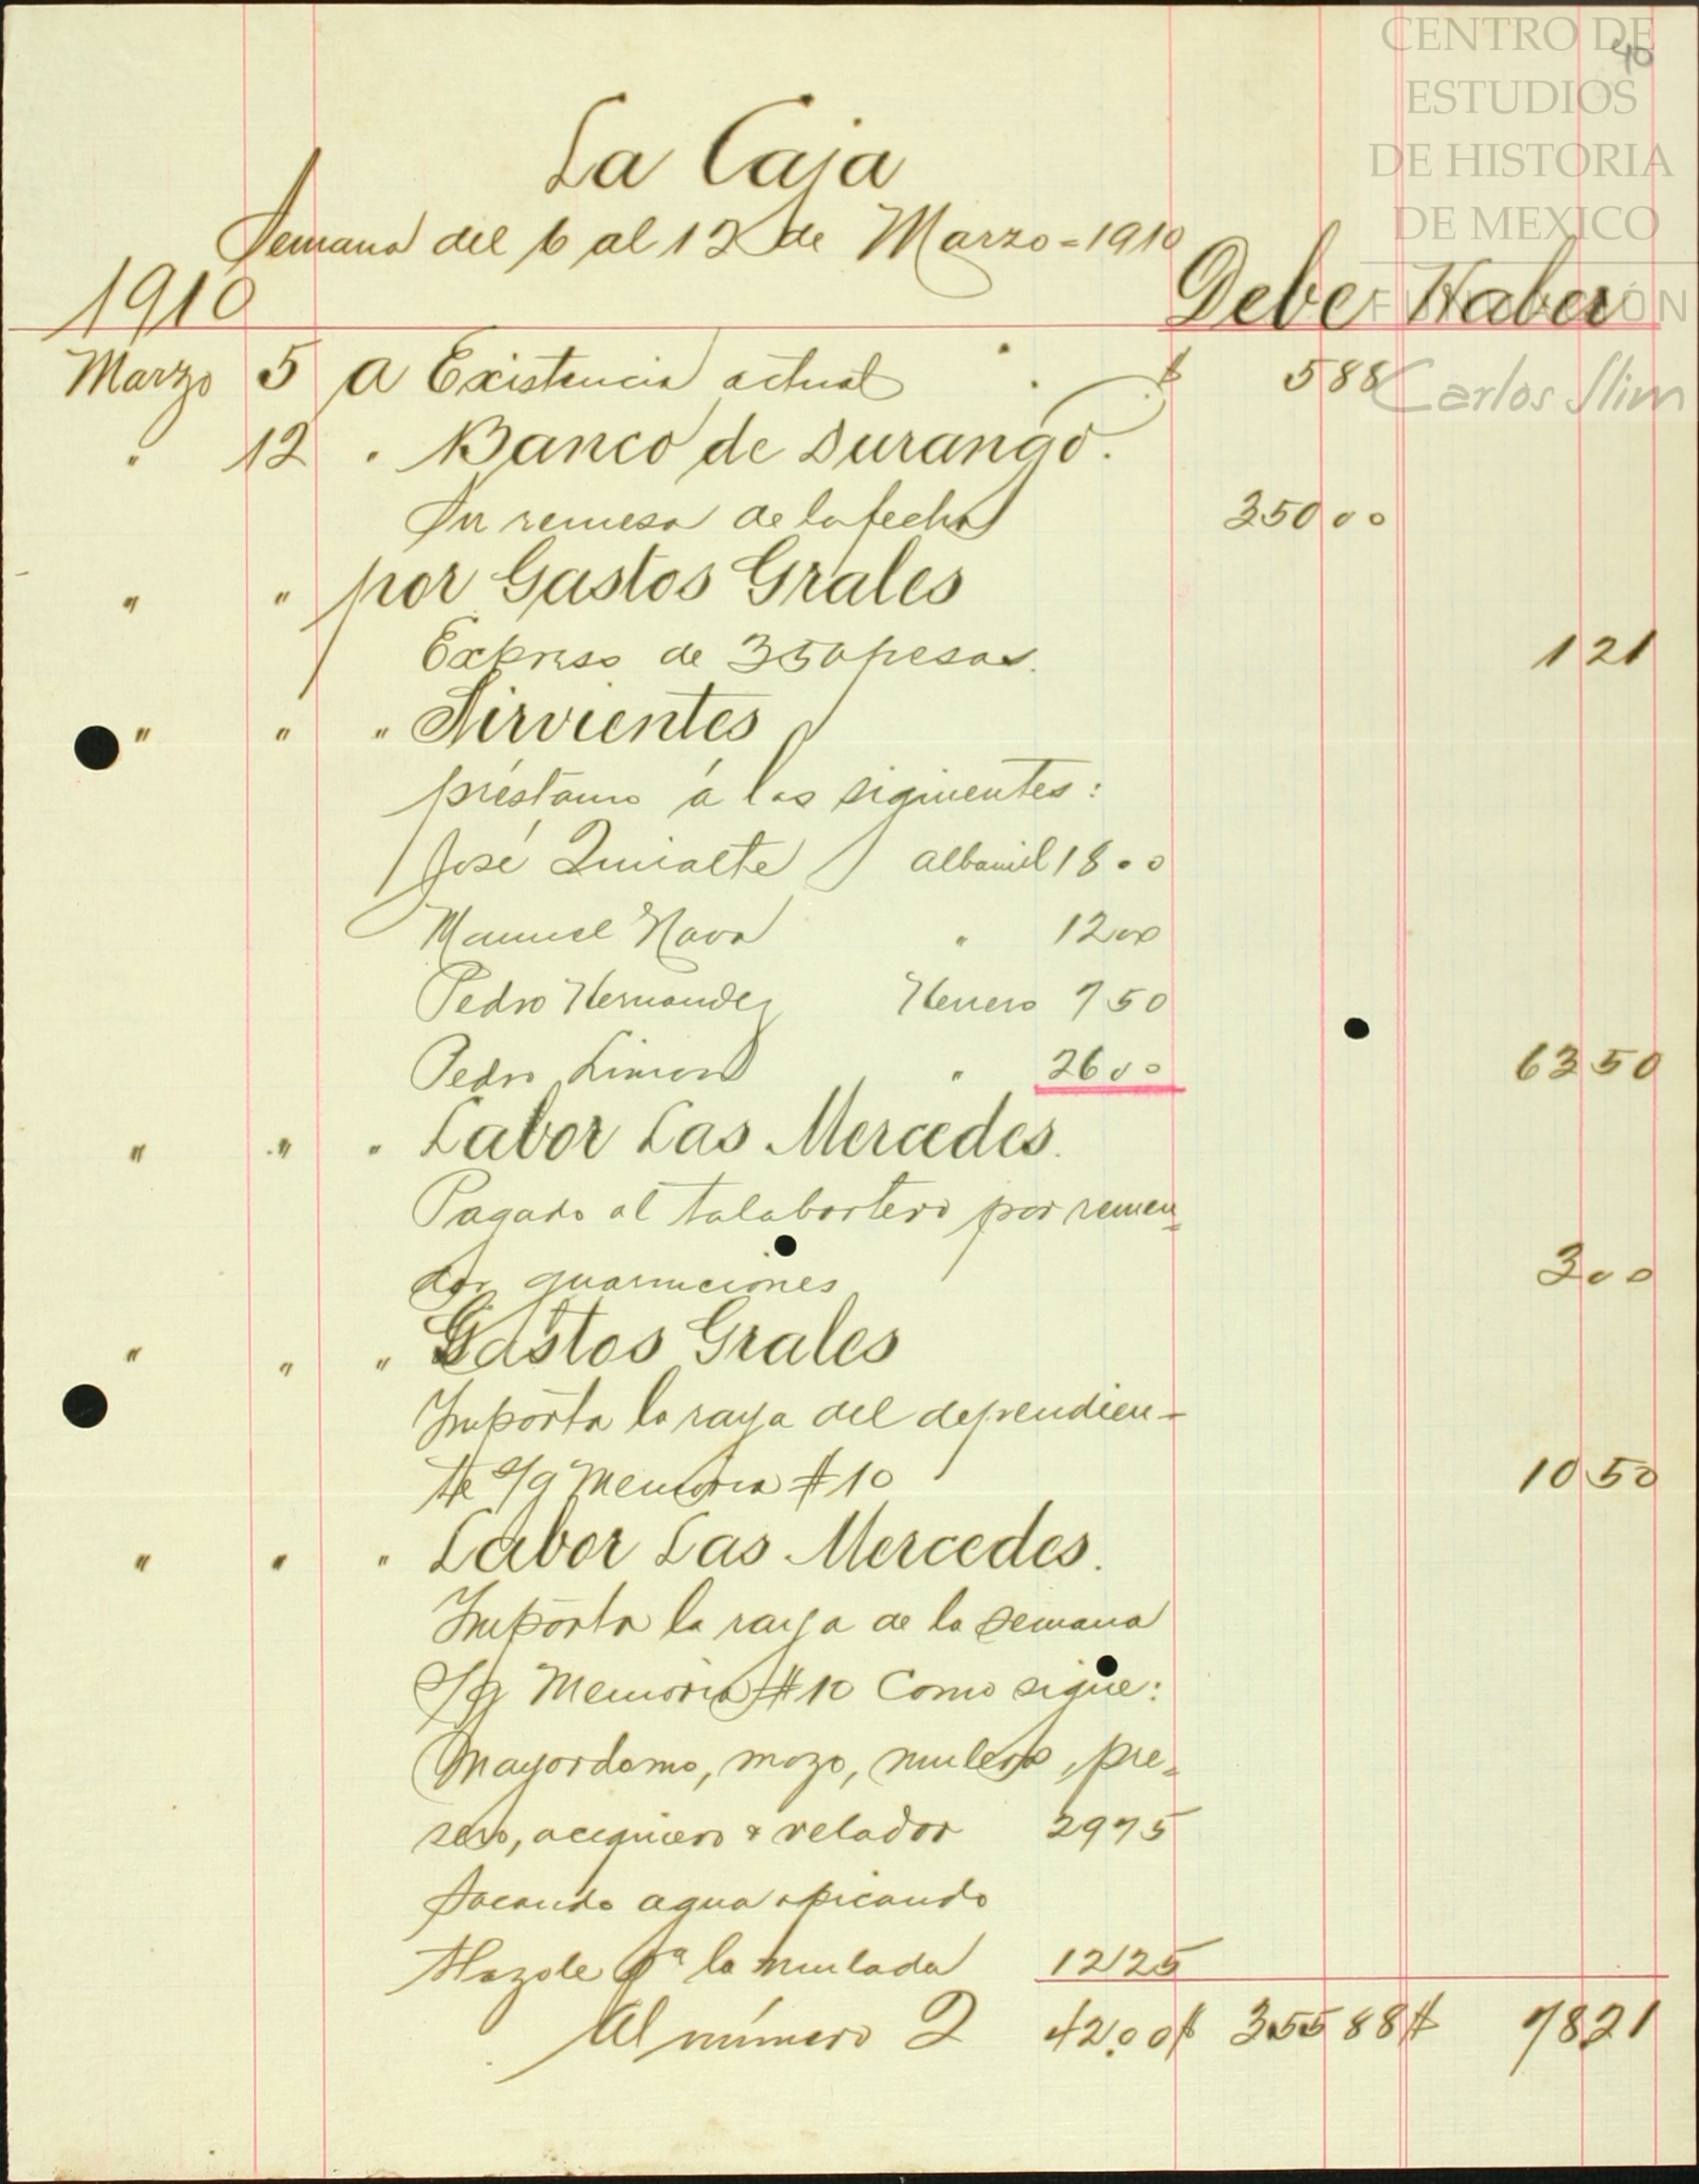 CENTRO DE
ESTUDIOS
DE HISTORIA
DE MEXICO
FUNDACIÓN
Carlos Slim
40
La Caja
Semana del 6 al 12 de Marzo = 1910
1910 Debe Haber
Marzo 5 A Existencia actual $ 5 88
" 12 " Banco de Durango.
Su remesa de la fecha 350 00
" " por Gastos Grales
Expreso de 350 pesos. 1 21
" " " Sirvientes
préstamo á los siguientes:
José Quiralte albanil 18 00
Manuel Nava " 12 00
Pedro Hernandez Herrero 7 50
Pedro Limon " 26 00 63 50
" " " Labor Las Mercedes.
Pagado al talabartero por remen=
dar guarniciones 3 00
" " " Gastos Grales
Importa la raya del dependien-
te S/g Memoria #10 10 50
" " " Labor Las Mercedes.
Importa la raya de la semana
S/g Memoria #10 Como sigue:
Mayordomo, mozo, mulero, pre=
sero, acequiero & velador 29 75
Sacando agua picando
Hazole pª la mulada 12 25
Al número 2 42.00 $ 355 88 $ 78 21